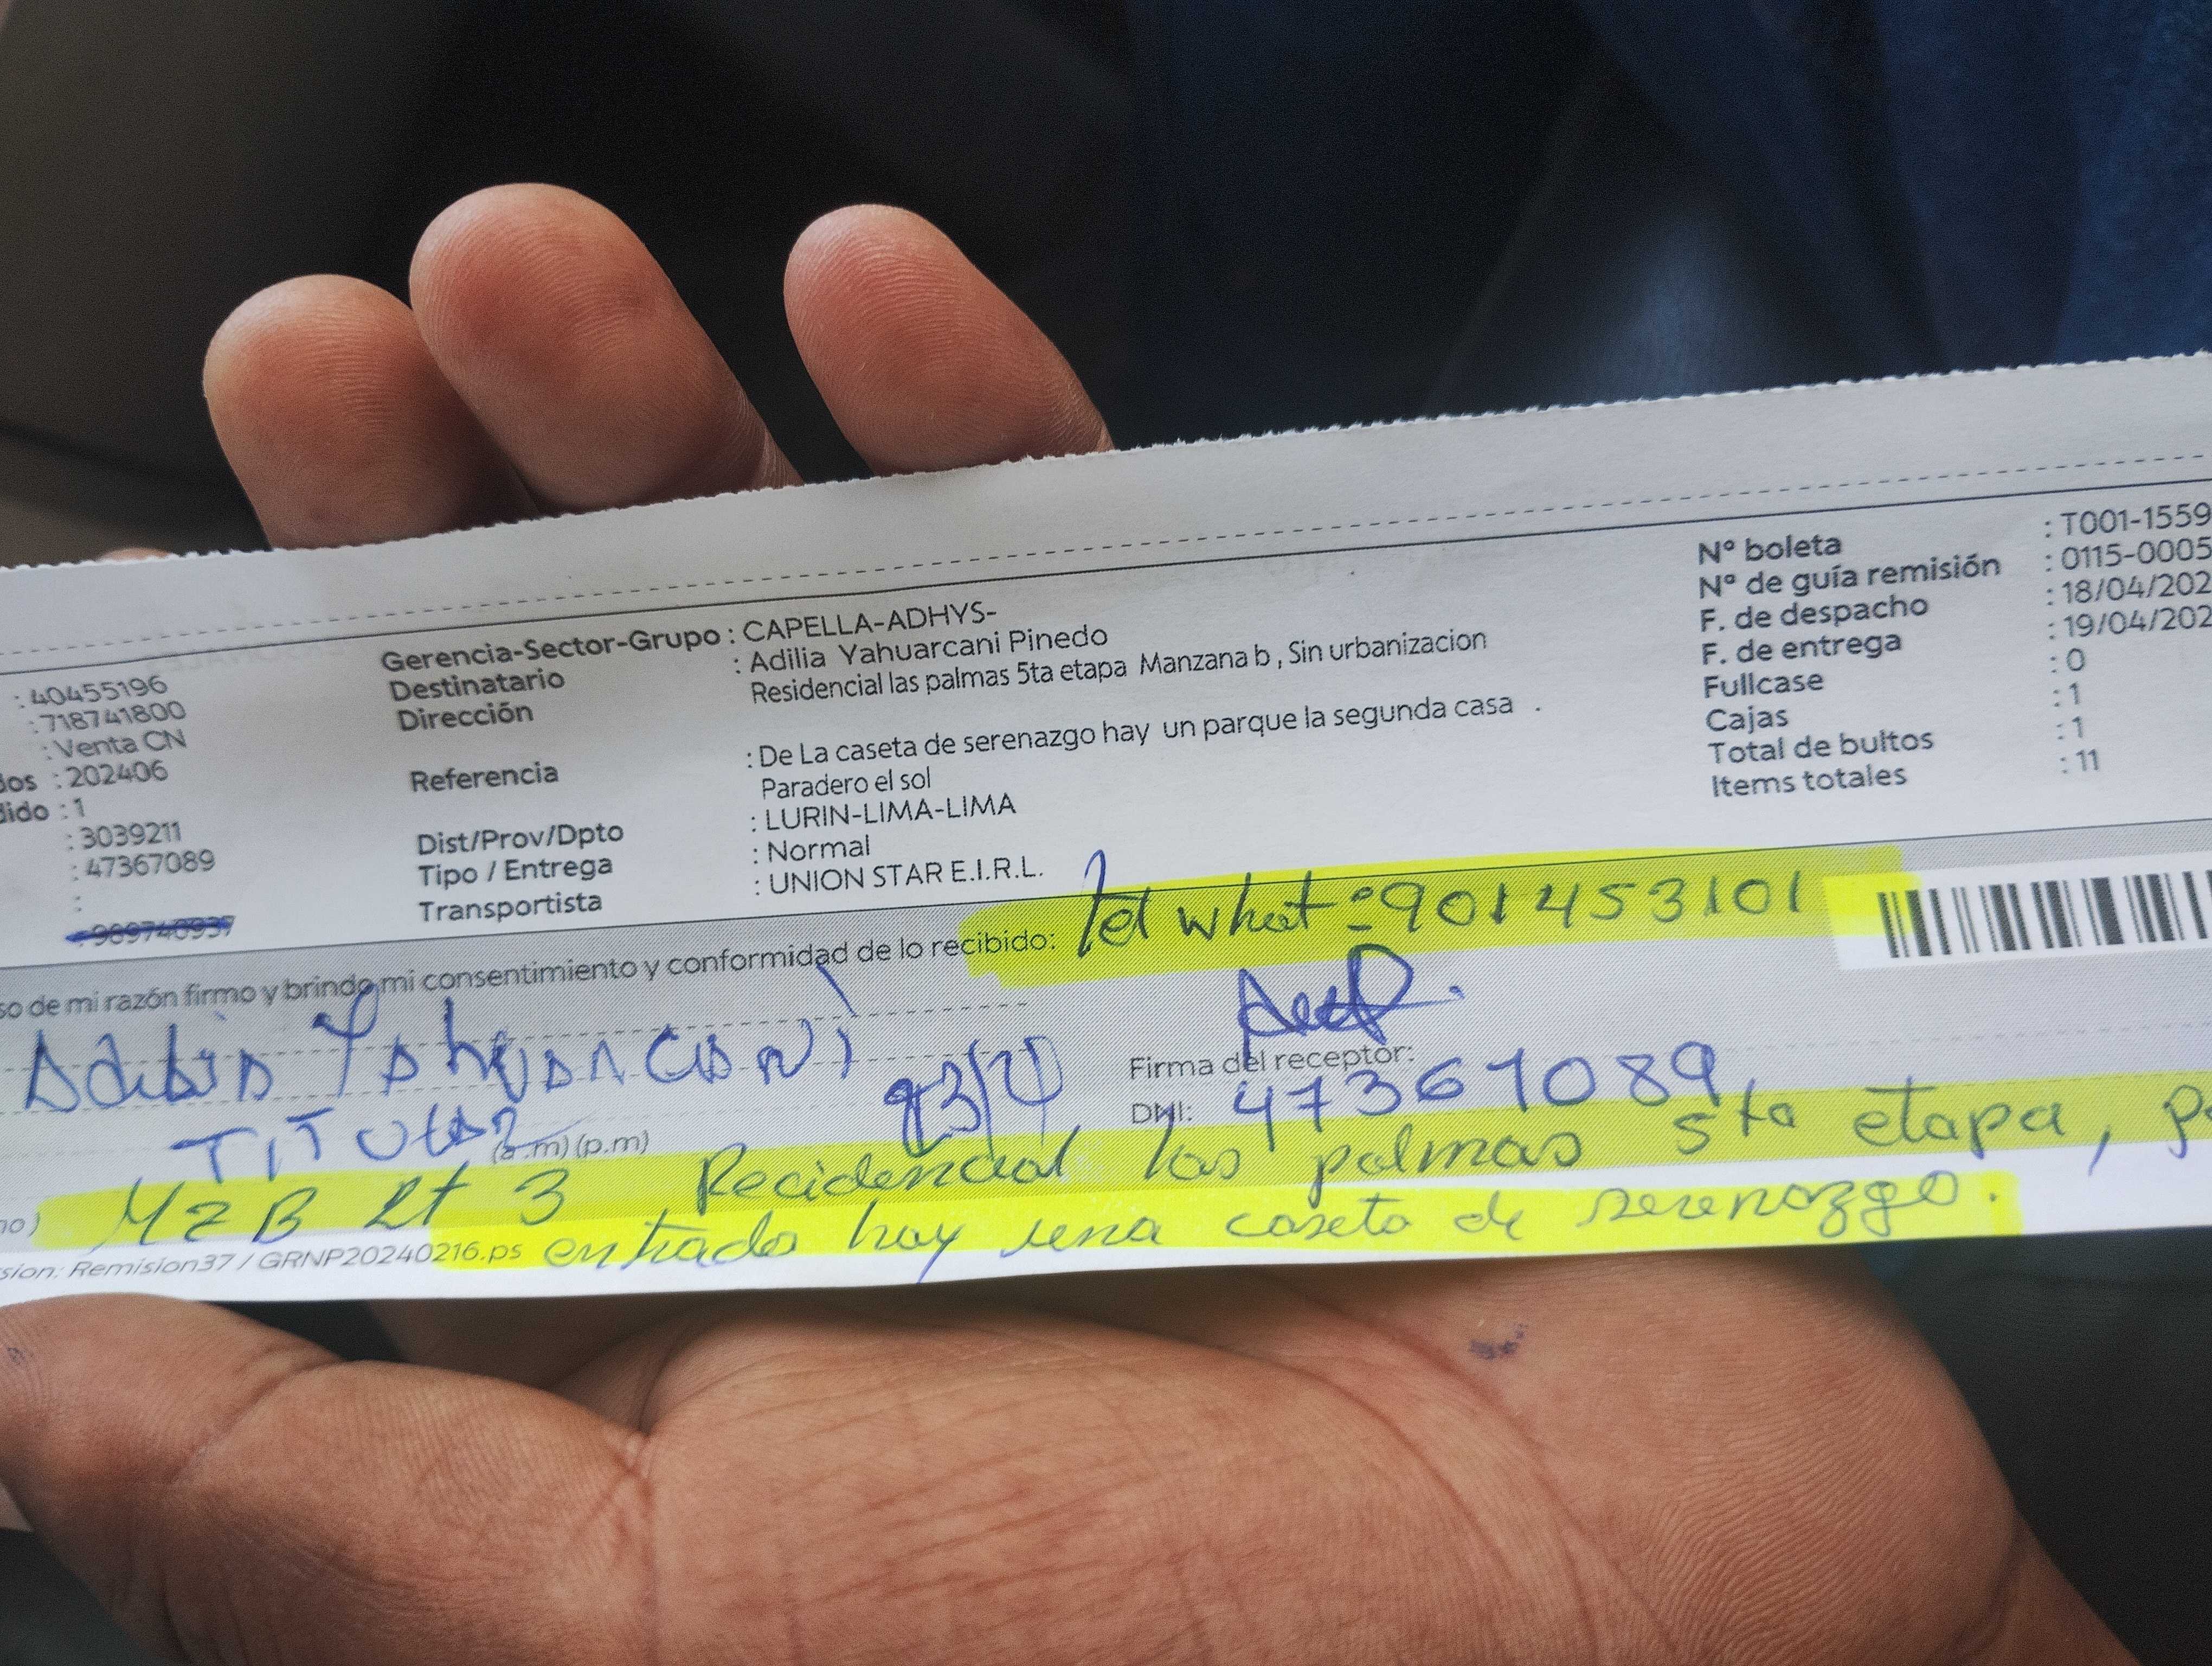 Gerencia-Sector-Grupo : CAPELLA-ADHYS-
Destinatario : Adilia Yahuarcani Pinedo
Dirección Residencial las palmas 5ta etapa Manzana b , Sin urbanizacion
Referencia : De La caseta de serenazgo hay un parque la segunda casa .
Paradero el sol
Dist/Prov/Dpto : LURIN-LIMA-LIMA
Tipo / Entrega : Normal
Transportista : UNION STAR E.I.R.L.
: 40455196
: 718741800
: Venta CN
dos : 202406
dido : 1
: 3039211
: 47367089
:
: 989740937
N° boleta : T001-1559
N° de guía remisión : 0115-0005
F. de despacho : 18/04/202
F. de entrega : 19/04/202
Fullcase : 0
Cajas : 1
Total de bultos : 1
Items totales : 11
so de mi razón firmo y brindo mi consentimiento y conformidad de lo recibido: Tel what : 901453101
Adilia Yahuarcani
Firma del receptor:
TITULAR (a.m) (p.m) DNI: 47367089
no) Mz B Lt 3 Recidencial las palmas 5ta etapa,
sion: Remision37 / GRNP20240216.ps entrada hay una caseta de serenazgo.